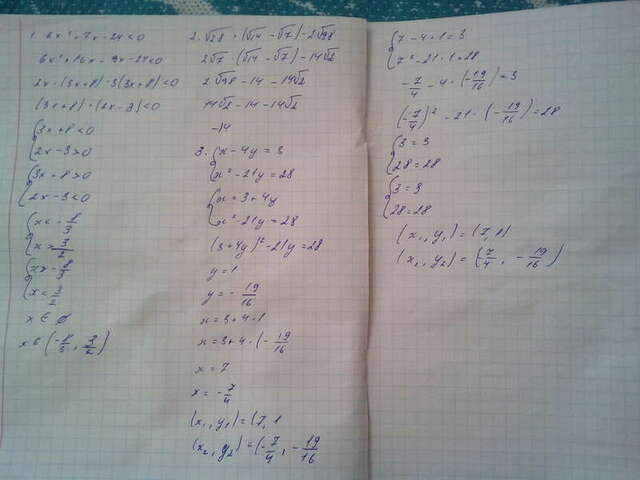 1. 6x² + 7x - 24 < 0
6x² + 16x - 9x - 24 < 0
2x · (3x+8) - 3(3x+8) < 0
(3x+8) · (2x-3) < 0
{3x+8 < 0
2x - 3 > 0
{3x+8 > 0
2x - 3 < 0
{x < - 8/3
x > 3/2
{x > - 8/3
x < 3/2
x ∈ ∅
x ∈ (-8/3, 3/2)
2. √28 · (√14 - √7) - 2√98
2√7 · (√14 - √7) - 14√2
2√98 - 14 - 14√2
14√2 - 14 - 14√2
-14
3. {x - 4y = 3
x² - 21y = 28
{x = 3 + 4y
x² - 21y = 28
(3+4y)² - 21y = 28
y = 1
y = - 19/16
x = 3 + 4 · 1
x = 3 + 4 · (- 19/16
x = 7
x = - 7/4
(x₁, y₁) = (7, 1
(x₂, y₂) = (- 7/4, - 19/16
{7 - 4 · 1 = 3
7² - 21 · 1 = 28
- 7/4 - 4 · (- 19/16) = 3
(- 7/4)² - 21 · (- 19/16) = 28
{3 = 3
28 = 28
{3 = 3
28 = 28
(x₁, y₁) = (7, 1)
(x₂, y₂) = (7/4, - 19/16)